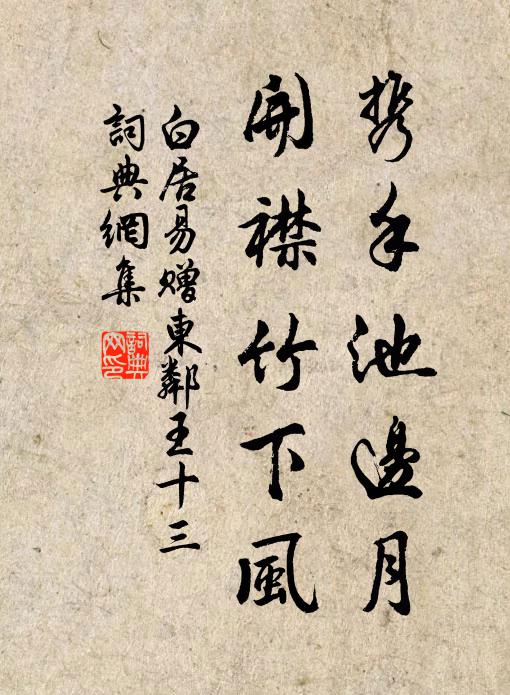 携手池邊月
開襟竹下風
白居易贈東鄰王十三
詞典網集
詞典网印